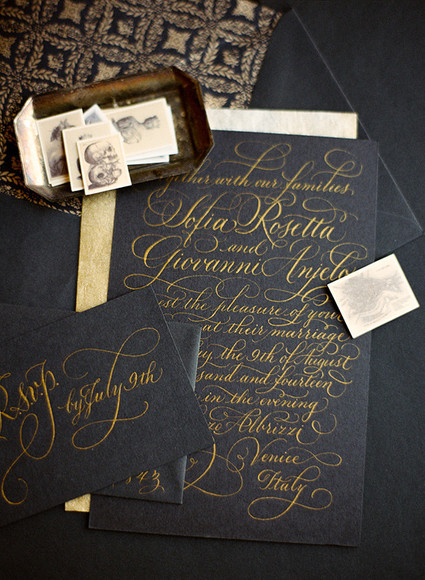 together with our families,
Sofia Rosetta
and
Giovanni Anjelo
est the pleasure of your
at their marriage
ay, the 9th of August
sand and fourteen
in the evening
zo Albrizzi
Venice
Italy
R.s.v.p.
by July 9th